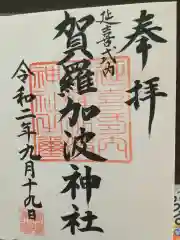 奉拝
延喜式内
賀羅加波神社
令和二年九月十九日